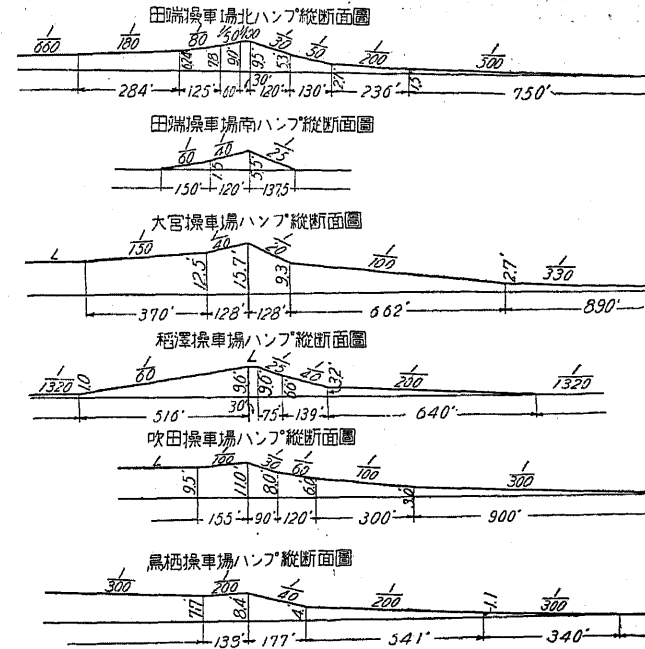 田端操車場北ハンプ縦断面圖
1/660 1/180 1/80 1/50 1/30 1/50 1/200 1/300
9.5' 5.3 2.7' 1.5'
284' 125' 60' 30' 120' 130' 236' 750'
田端操車場南ハンプ縦断面圖
1/60 1/40 1/25
1.5' 5.5'
150' 120' 137.5
大宮操車場ハンプ縦断面圖
L 1/150 1/40 1/20 1/100 1/330
12.5' 15.7' 9.3 2.7'
370' 128' 128' 662' 890'
稻澤操車場ハンプ縦断面圖
1/1320 1/60 L 1/25 1/200 1/1320
1.0 9.6' 9.6' 6.6' 3.2'
516' 30' 75' 139' 640'
吹田操車場ハンプ縦断面圖
L 1/100 1/30 1/60 1/100 1/300
9.5' 11.0' 8.0' 6.0' 3.0'
155' 90' 120' 300' 900'
鳥栖操車場ハンプ縦断面圖
1/300 1/200 1/40 1/200 1/300
7.7' 8.4' 4.' 1.1
133' 177' 541' 340'